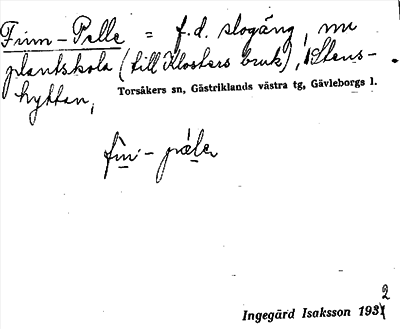 Finn-Pelle = f.d. slogäng, nu
plantskola (till Klosters bruk), i Stens-
hyttan,
Torsåkers sn, Gästriklands västra tg, Gävleborgs l.
fin-pæle
Ingegärd Isaksson 1932